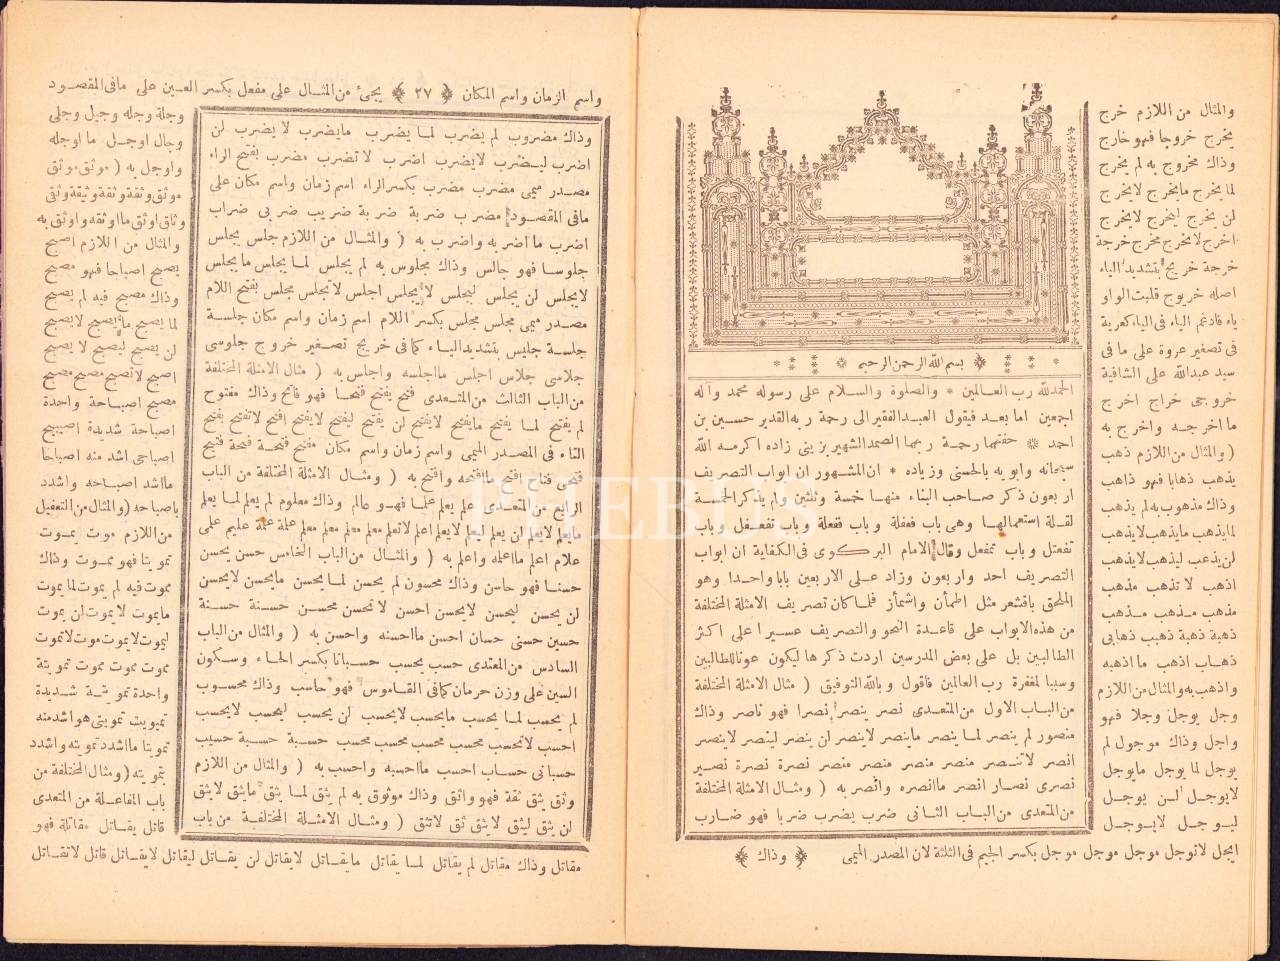 بسم الله الرحمن الرحيم
الحمدلله رب العالمين والصلوة والسلام على رسوله محمد وآله
اجمعين اما بعد فيقول العبد الفقير الى رحمة ربه القدير حسين بن
احمد حفتهما رحمة ربهما الصمد الشهير بزينى زاده اكرمه الله
سبحانه وابويه بالحسنى وزياده ان المشهور ان ابواب التصريف
اربعون ذكر صاحب البناء منها خمسة وثلثين ولم يذكر الخمسة
لقلة استعمالها وهى باب فعفلة وباب فنعلة وباب تفعفل وباب
تفعتل وباب تمفعل وقال الامام البركوى فى الكفاية ان ابواب
التصريف احد واربعون وزاد على الاربعين بابا واحدا وهو
الملحق باقشعر مثل اطمأن واشمأز فلما كان تصريف الامثلة المختلفة
من هذه الابواب على قاعدة النحو والتصريف عسيرا على اكثر
الطالبين بل على بعض المدرسين اردت ذكرها ليكون عونا للطالبين
وسببا لمغفرة رب العالمين فاقول وبالله التوفيق ( مثال الامثلة المختلفة
من الباب الاول من المتعدى نصر ينصر نصرا فهو ناصر وذاك
منصور لم ينصر لما ينصر ماينصر لاينصر لن ينصر لينصر لاينصر
انصر لاتنصر منصر منصر منصر منصر نصرة نصرة نصير
نصرى نصار انصر ماانصره وانصر به ( ومثال الامثلة المختلفة
من المتعدى من الباب الثانى ضرب يضرب ضربا فهو ضارب
والمثال من اللازم خرج
يخرج خروجا فهو خارج
وذاك مخروج به لم يخرج
لما يخرج مايخرج لايخرج
لن يخرج ليخرج لايخرج
اخرج لاتخرج مخرج خرجة
خرجة خريج بتشديد الياء
اصله خريوج قلبت الواو
ياء فادغم الياء فى الياء كعرية
فى تصغير عروة على ما فى
سيد عبدالله على الشافية
خروجى خراج اخرج
ما اخرجه واخرج به
( والمثال من اللازم ذهب
يذهب ذهابا فهو ذاهب
وذاك مذهوب به لم يذهب
لما يذهب مايذهب لايذهب
لن يذهب ليذهب لايذهب
اذهب لا تذهب مذهب
مذهب مذهب مذهب
ذهبة ذهبة ذهيب ذهابى
ذهاب اذهب ما اذهبه
واذهب به والمثال من اللازم
وجل يوجل وجلا فهو
واجل وذاك موجول لم
يوجل لما يوجل مايوجل
لايوجل لن يوجل
ليوجل لايوجل
ايجل لاتوجل موجل موجل موجل بكسر الجيم فى الثلثة لان المصدر الميمى
وذاك
واسم الزمان واسم المكان ﴿ ٢٧ ﴾ يجئ من المثال على مفعل بكسر العين على مافى المقصود
وذاك مضروب لم يضرب لما يضرب مايضرب لا يضرب لن
اضرب ليضرب لايضرب اضرب لاتضرب مضرب بفتح الراء
مصدر ميمى مضرب مضرب بكسر الراء اسم زمان واسم مكان على
مافى المقصود مضرب ضربة ضربة ضريب ضربى ضراب
اضرب ما اضربه واضرب به ( والمثال من اللازم جلس يجلس
جلوسا فهو جالس وذاك مجلوس به لم يجلس لما يجلس مايجلس
لايجلس لن يجلس ليجلس لايجلس اجلس لاتجلس مجلس بفتح اللام
مصدر ميمى مجلس مجلس بكسر اللام اسم زمان واسم مكان جلسة
جلسة جليس بتشديد الياء كما فى خريج تصغير خروج جلوسى
جلاسى جلاس اجلس مااجلسه واجلس به ( مثال الامثلة المختلفة
من الباب الثالث من المتعدى فتح يفتح فتحا فهو فاتح وذاك مفتوح
لم يفتح لما يفتح مايفتح لايفتح لن يفتح ليفتح لايفتح افتح لاتفتح بفتح
التاء فى المصدر الميمى واسم زمان واسم مكان مفتح فتحة فتحة فتيح
فتحى فتاح افتح ماافتحه وافتح به ( ومثال الامثلة المختلفة من الباب
الرابع من المتعدى علم يعلم علما فهو عالم وذاك معلوم لم يعلم لما يعلم
مايعلم لايعلم لن يعلم ليعلم لايعلم اعلم لاتعلم معلم معلم معلم معلم علمة علمة عليم علمى
علام اعلم مااعلمه واعلم به ( والمثال من الباب الخامس حسن يحسن
حسنا فهو حاسن وذاك محسون لم يحسن لما يحسن مايحسن لايحسن
لن يحسن ليحسن لايحسن احسن لاتحسن محسن حسنة حسنة
حسين حسنى حسان احسن مااحسنه واحسن به ( والمثال من الباب
السادس من المعتدى حسب يحسب حسبانا بكسر الحاء وسكون
السين على وزن حرمان كمافى القاموس فهو حاسب وذاك محسوب
لم يحسب لما يحسب مايحسب لايحسب لن يحسب ليحسب لايحسب
احسب لاتحسب محسب محسب محسب محسب حسبة حسبة حسيب
حسبانى حساب احسب مااحسبه واحسب به ( والمثال من اللازم
وثق يثق ثقة فهو واثق وذاك موثوق به لم يثق لما يثق مايثق لايثق
لن يثق ليثق لايثق ثق لاتثق ( ومثال الامثلة المختلفة من باب
وجلة وجله وجيل وجلى
وجال اوجل ما اوجله
واوجل به ( موثق موثق
موثق وثقة وثقة وثيقة وثقى
وثاق اوثق مااوثقه واوثق به
والمثال من اللازم اصبح
يصبح اصباحا فهو مصبح
وذاك مصبح فيه لم يصبح
لما يصبح مايصبح لايصبح
لن يصبح ليصبح لا يصبح
اصبح لاتصبح مصبح مصبح
مصبح اصباحة واحدة
اصباحة شديدة اصيبيح
اصباحى اشد منه اصباحا
مااشد اصباحه واشدد
باصباحه ( والمثال من التفعيل
من اللازم موت يموت
تمويتا فهو مموت وذاك
مموت فيه لم يموت لما يموت
مايموت لايموت لن يموت
ليموت لايموت موت لاتموت
مموت مموت مموت تمويتة
واحدة تمويتة شديدة
تمييويت تمويتى هو اشد منه
تمويتا مااشد تمويته واشدد
بتمويته ( ومثال المختلفة من
باب المفاعلة من المتعدى
قاتل يقاتل مقاتلة فهو
مقاتل وذاك مقاتل لم يقاتل لما يقاتل مايقاتل لايقاتل لن يقاتل ليقاتل لايقاتل قاتل لاتقاتل
PHEBUS